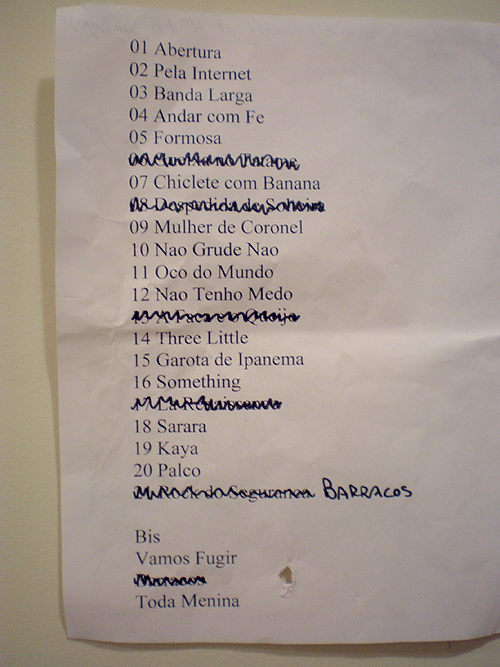 01 Abertura
02 Pela Internet
03 Banda Larga
04 Andar com Fe
05 Formosa
07 Chiclete com Banana
08 Despedida de Solteira
09 Mulher de Coronel
10 Nao Grude Nao
11 Oco do Mundo
12 Nao Tenho Medo
13 A Faca e o Queijo
14 Three Little
15 Garota de Ipanema
16 Something
18 Sarara
19 Kaya
20 Palco
21 Rock do Seguranca BARRACOS
Bis
Vamos Fugir
Toda Menina